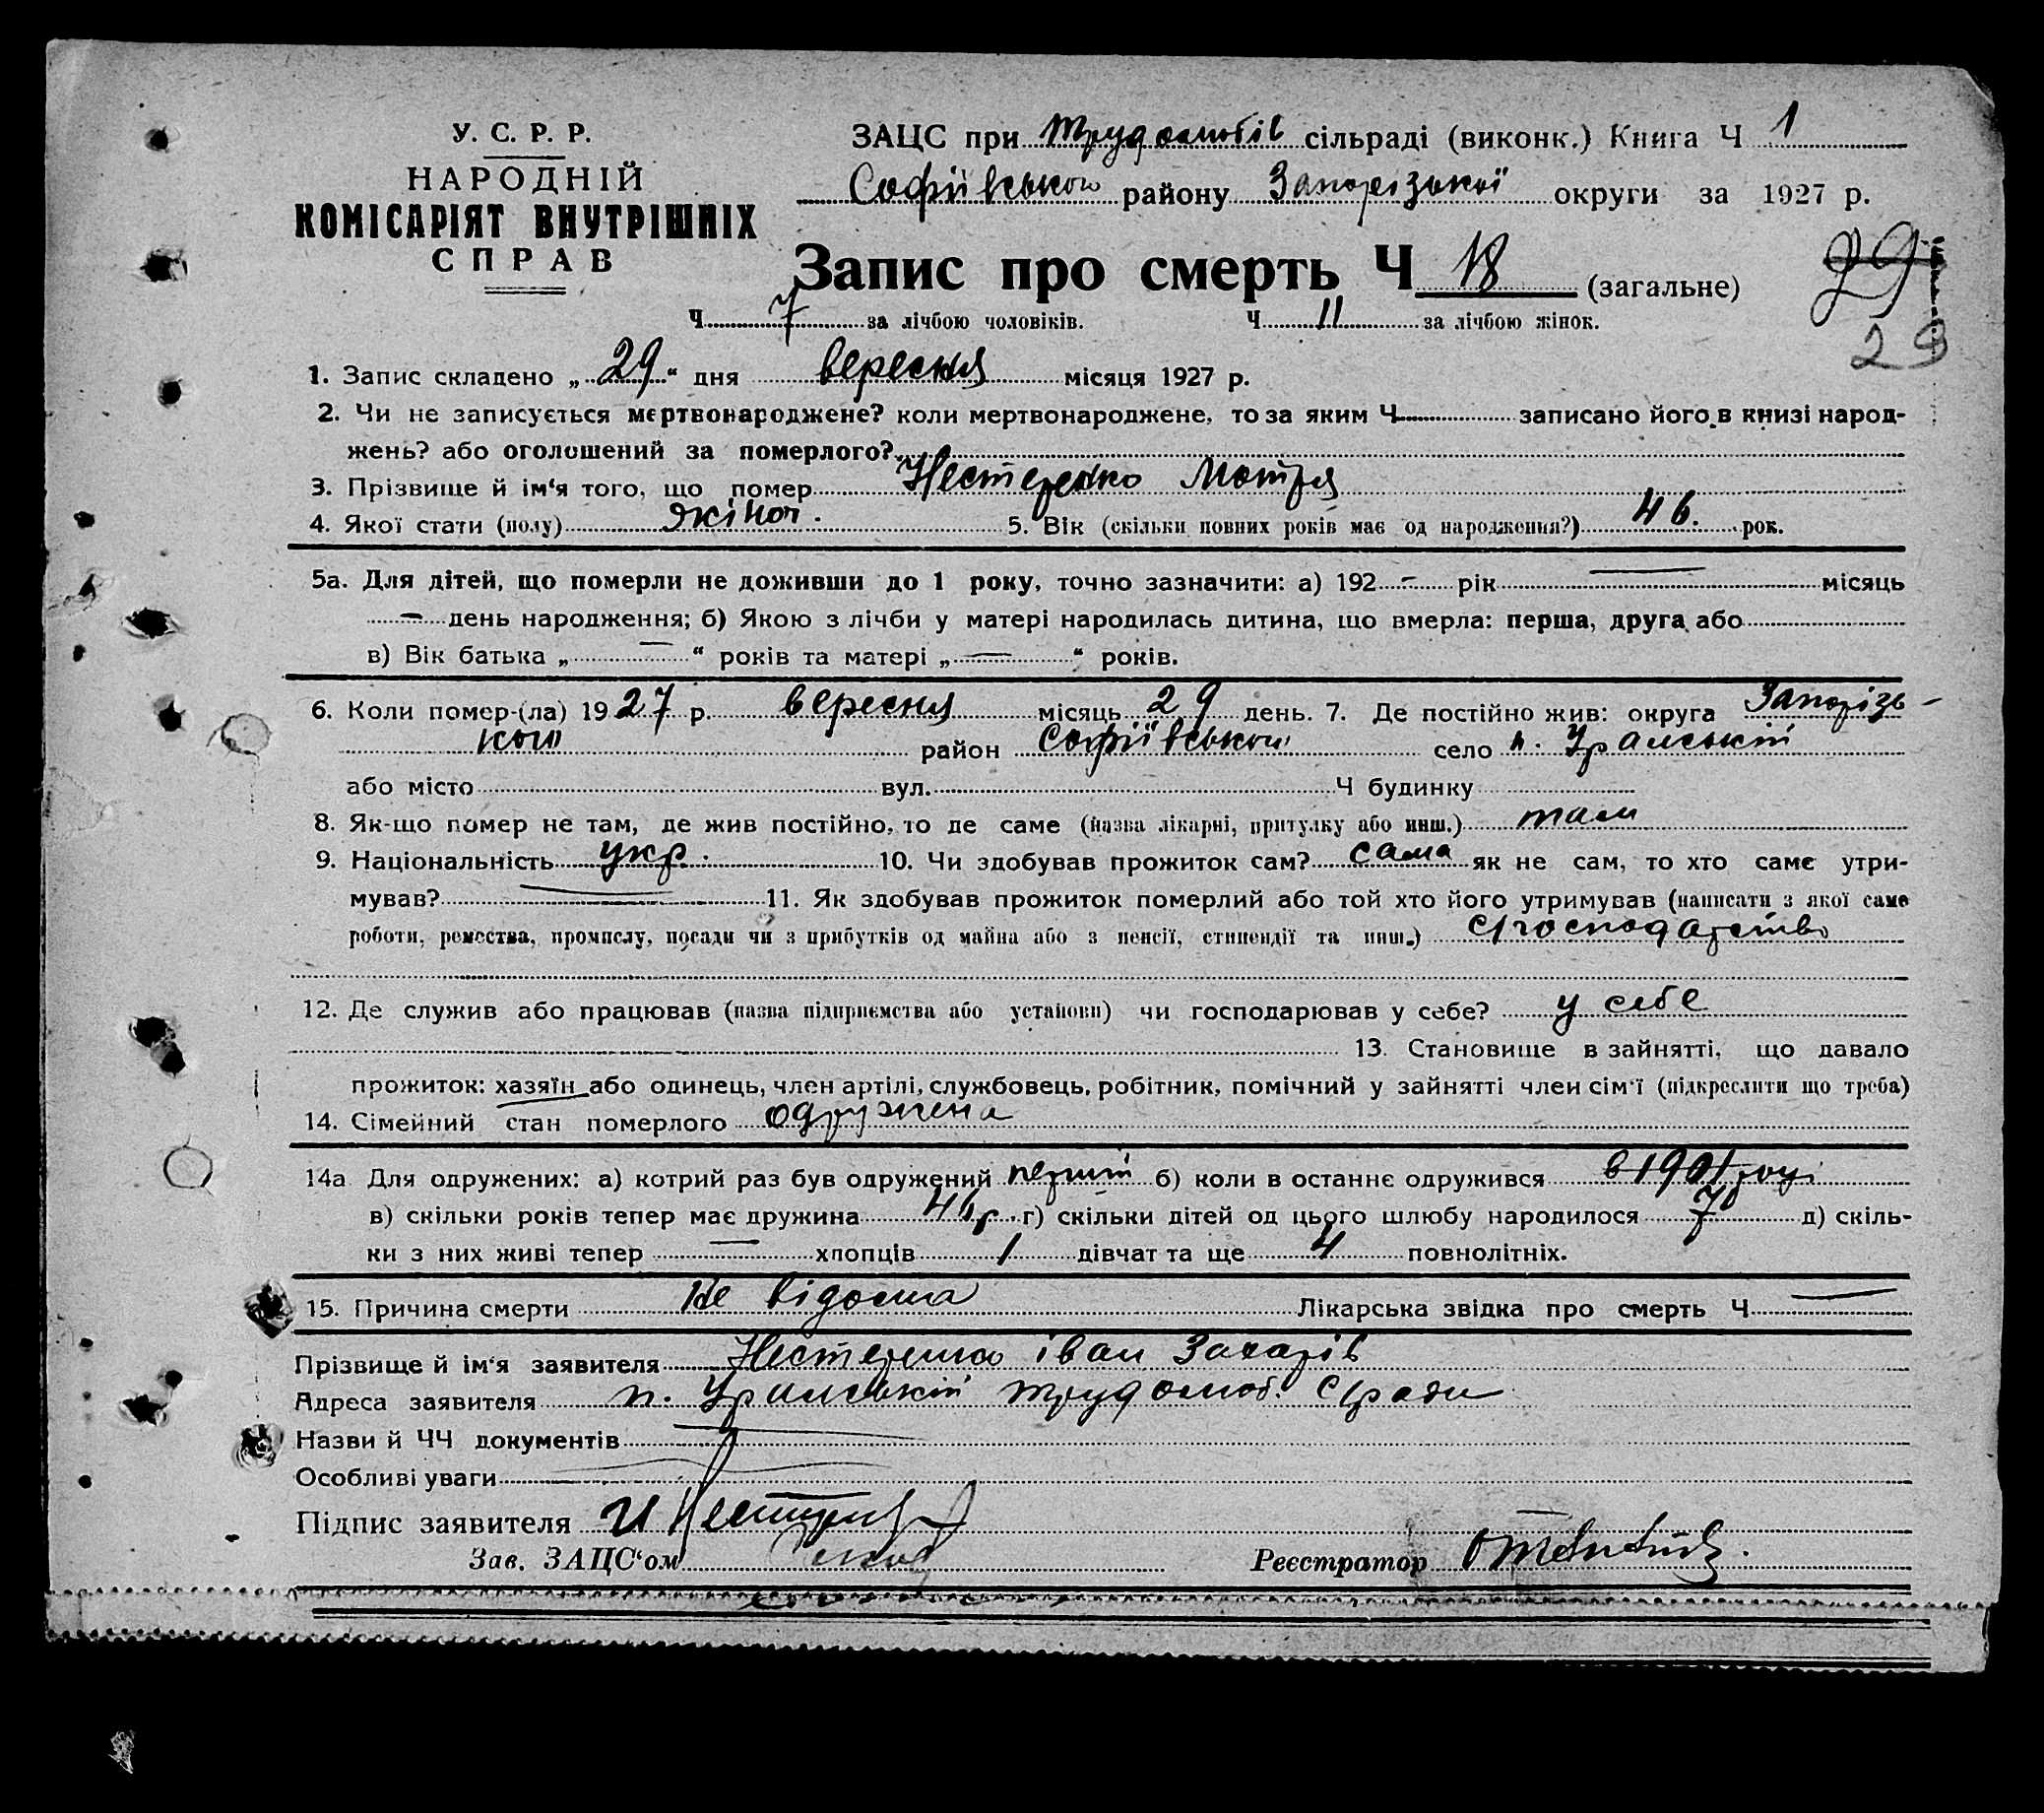 У. С. Р. Р.
НАРОДНІЙ
КОМІСАРІЯТ ВНУТРІШНІХ
СПРАВ
ЗАЦС при Трудолюбів сільраді (виконк.) Книга Ч 1
Софіївського району Запорізької округи за 1927 р.
Запис про смерть Ч 18 (загальне)
29
29
Ч 7 за лічбою чоловіків. Ч 11 за лічбою жінок.
1. Запис складено „29“ дня вересня місяця 1927 р.
2. Чи не записується мертвонароджене? коли мертвонароджене, то за яким Ч записано його в книзі народ-
жень? або оголошений за померлого?
3. Прізвище й ім‘я того, що помер Нестеренко Мотря
4. Якої статі (полу) жіноч. 5. Вік (скільки повних років має од народження?) 46. рок.
5а. Для дітей, що померли не доживши до 1 року, точно зазначити: а) 192 – рік — місяць
– день народження; б) Якою з лічби у матері народилась дитина, що вмерла: перша, друга або
в) Вік батька „—“ років та матері „—“ років.
6. Коли помер-(ла) 1927 р. вересня місяць 29 день. 7. Де постійно жив: округа Запорізь-
кого район Софіївського село п. Уральській
або місто вул. Ч будинку
8. Як-що помер не там, де жив постійно, то де саме (назва лікарні, притулку або инш.) там
9. Національність укр. 10. Чи здобував прожиток сам? сама як не сам, то хто саме утри-
мував? — 11. Як здобував прожиток померлий або той хто його утримував (написати з якої саме
роботи, ремества, промислу, посади чи з прибутків од майна або з пенсії, стипендії та инш.) с/господарство
12. Де служив або працював (назва підприємства або установи) чи господарював у себе? у себе
13. Становище в зайнятті, що давало
прожиток: хазяїн або одинець, член артілі, службовець, робітник, помічний у зайнятті член сім‘ї (підкреслити що треба)
14. Сімейний стан померлого одружена
14а Для одружених: а) котрий раз був одружений перший б) коли в останнє одружився в 1901 році
в) скільки років тепер має дружина 46 р. г) скільки дітей од цього шлюбу народилося 7 д) скіль-
ки з них живі тепер — хлопців 1 дівчат та ще 4 повнолітніх.
15. Причина смерти Не відома Лікарська звідка про смерть Ч —
Прізвище й ім‘я заявителя Нестеренко Іван Захарів
Адреса заявителя п. Уральській Трудолюб. с/ради
Назви й ЧЧ документів
Особливі уваги
Підпис заявителя И Нестерен
Зав. ЗАЦС‘ом
Реєстратор